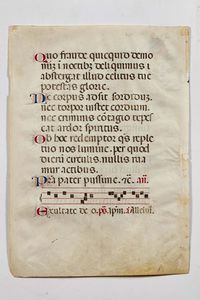 Quo fraude quicquid demo
nu͛ i noctibꝫ deliqͥmus ⁊
abstergat illud celitus tue
potestas glorie.
Ne corpus adsit sordidum.
nec torpor instet cordium.
nec criminis cotagio tepes
cat ardor spiritus.
Ob hoc redemptor q̄s reple
tuo nos lumine. per quod
dierū circulis. nullis rua
mur actibus.
Pra pater piissime. ⁊c̄. an̄.
Exultate deo
Alleluī.